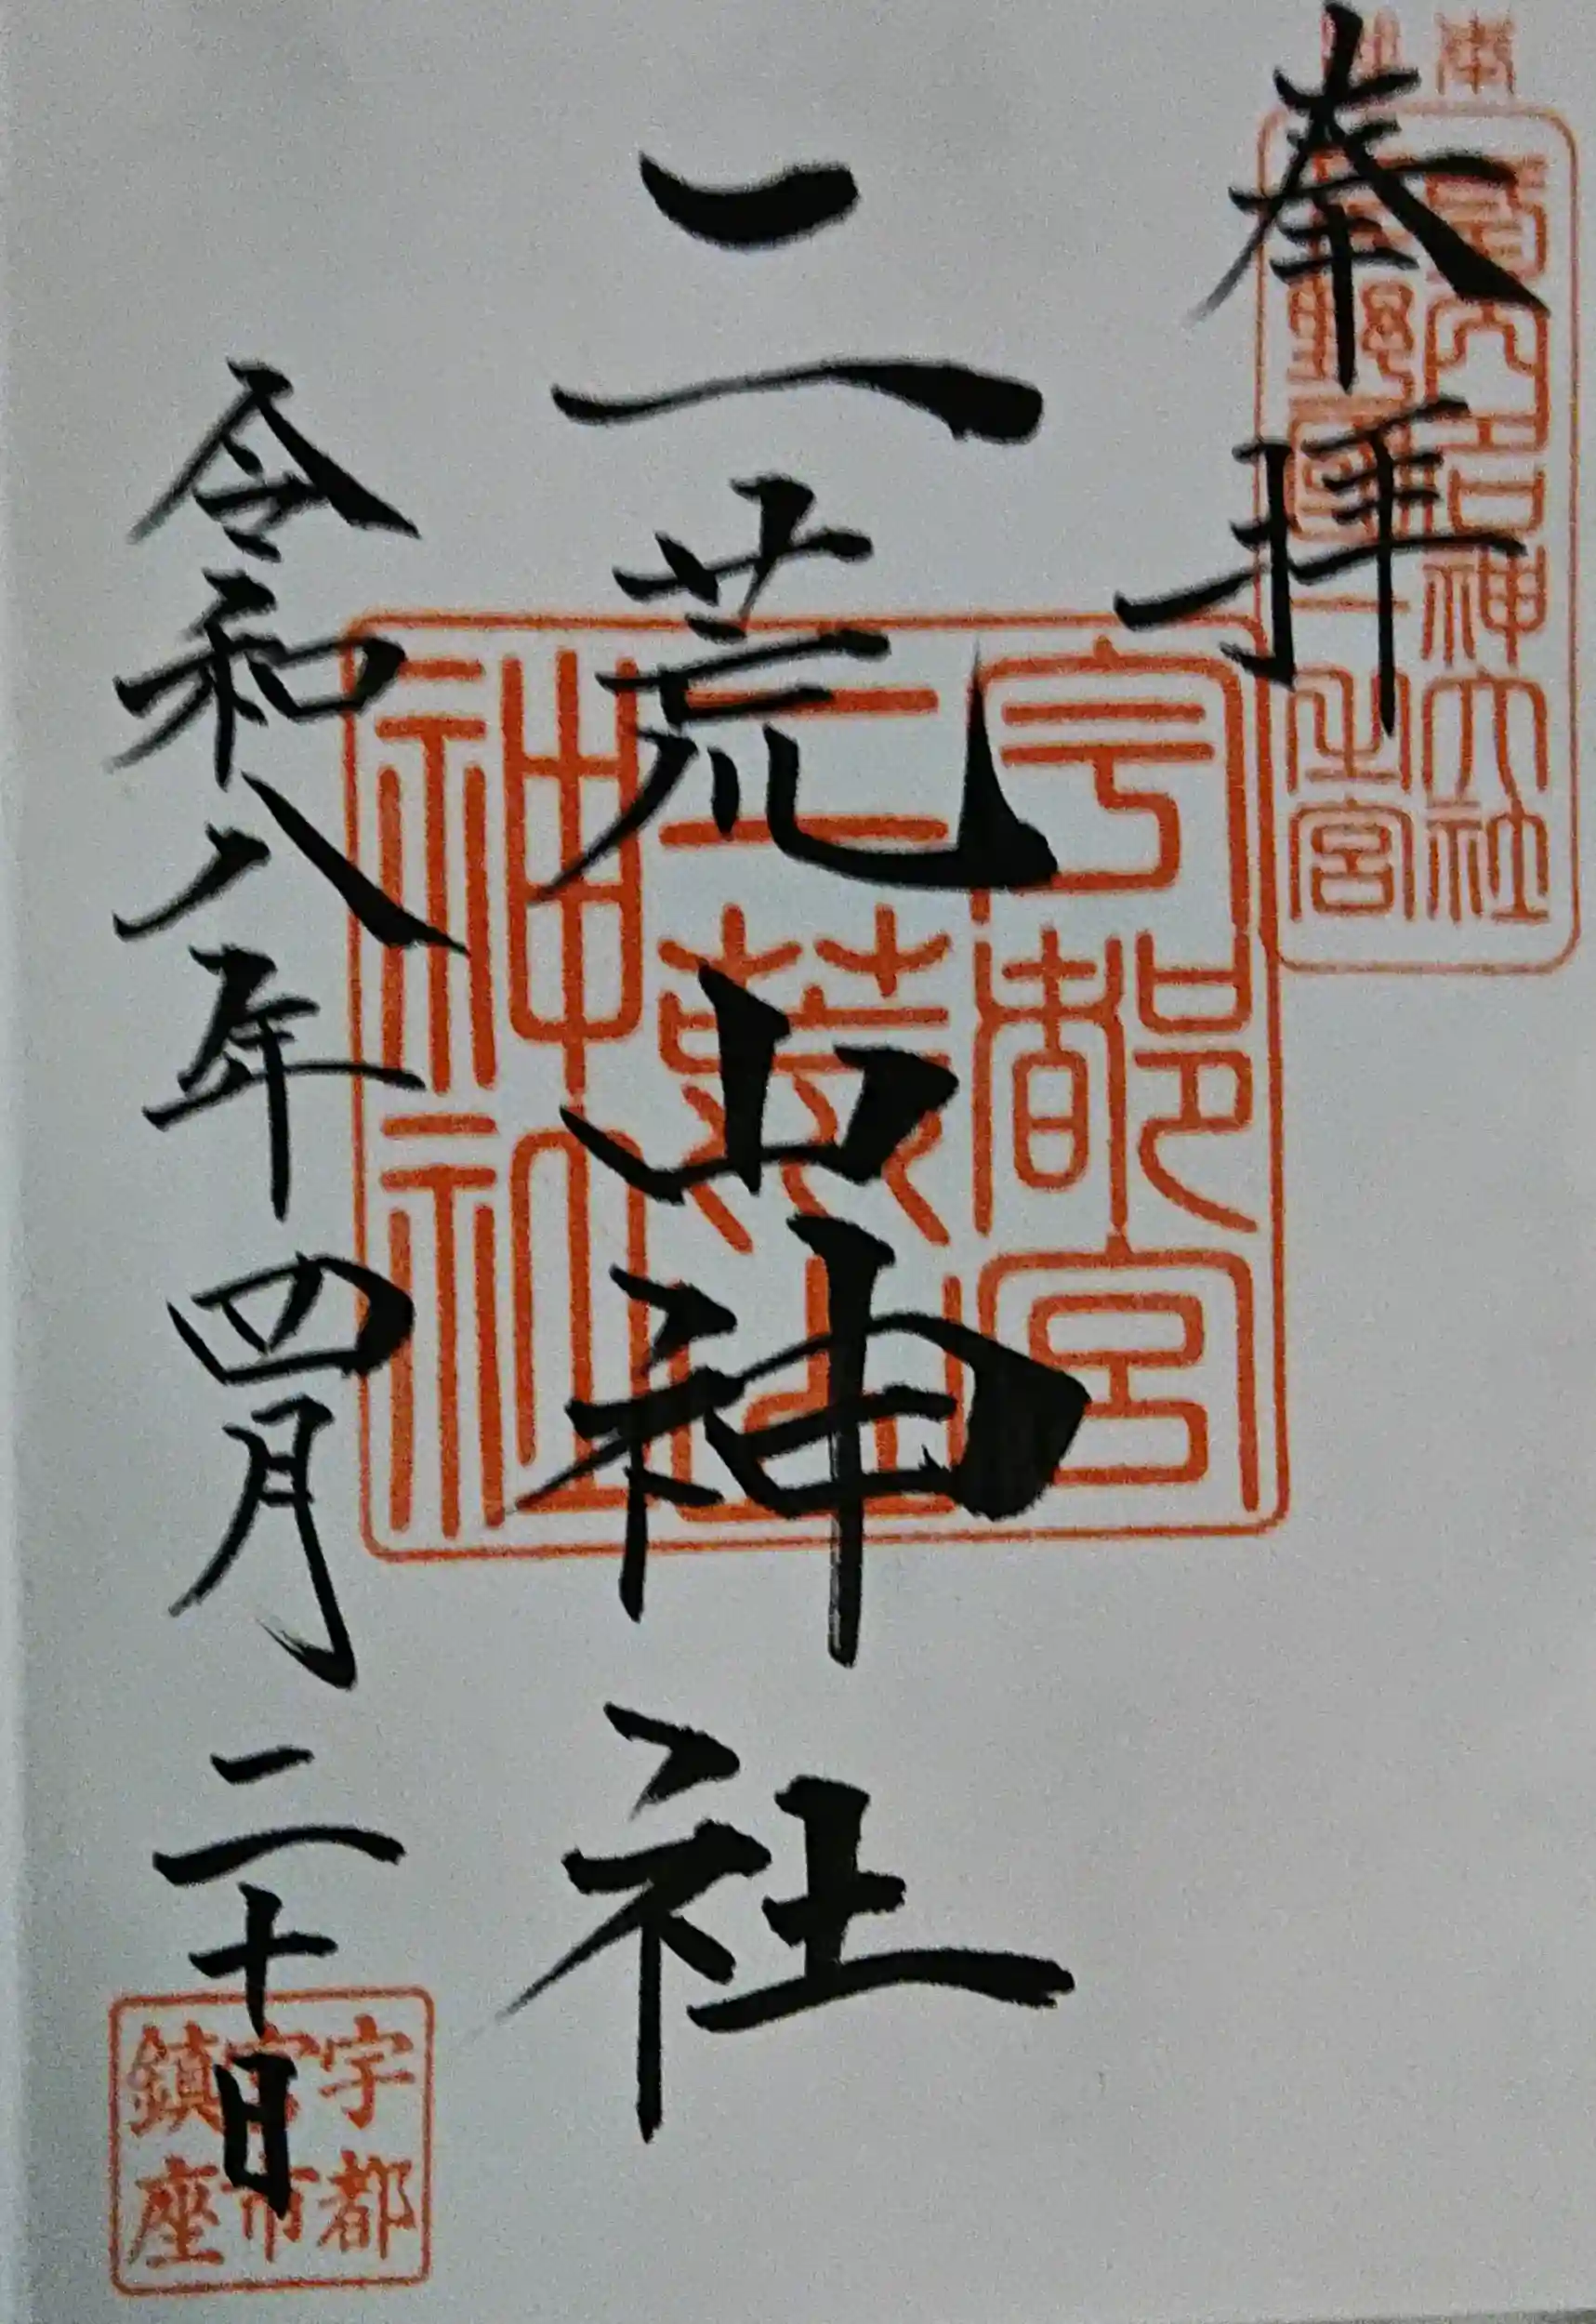 奉拝
二荒山神社
令和八年四月二十日
宇都宮
二荒山
神社
宇都
宮市
鎮座